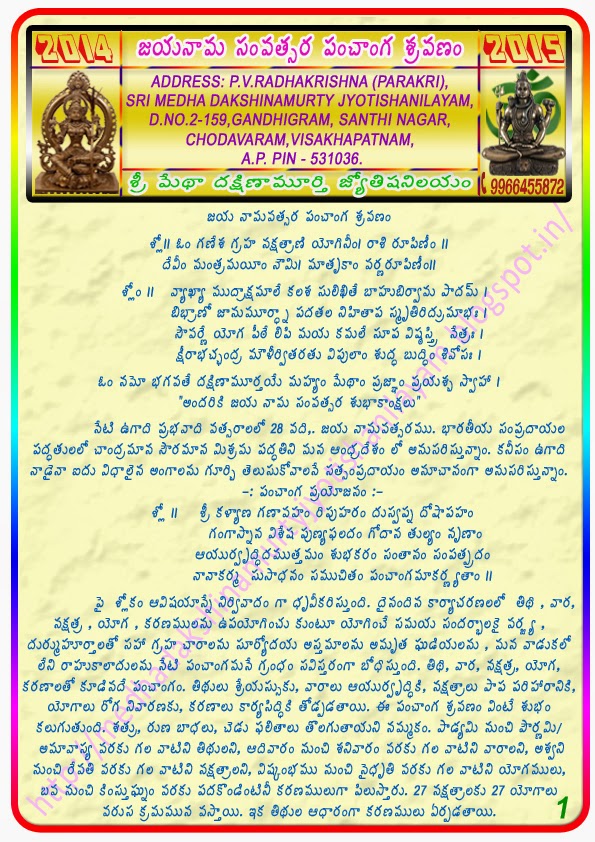 2014 జయనామ సంవత్సర పంచాంగ శ్రవణం 2015
ADDRESS: P.V.RADHAKRISHNA (PARAKRI),
SRI MEDHA DAKSHINAMURTY JYOTISHANILAYAM,
D.NO.2-159,GANDHIGRAM, SANTHI NAGAR,
CHODAVARAM,VISAKHAPATNAM,
A.P. PIN - 531036.
శ్రీ మేథా దక్షిణామూర్తి జ్యోతిషనిలయం 9966455872
జయ నామవత్సర పంచాంగ శ్రవణం
శ్లో॥ ఓం గణేశ గ్రహ నక్షత్రాణి యోగినీం। రాశి రూపిణీం ॥
దేవీం మంత్రమయీం నౌమి। మాతృకాం వర్ణరూపిణీం॥
శ్లోం ॥ వ్యాఖ్యా ముద్రాక్షమాలే కలశ సులిఖితే బాహుబిర్వామ పాదమ్ ।
బిభ్రాణో జామమూర్ధ్నా పదతల నిహితాప స్మృతిరిద్రుమాభః ।
సౌవర్ణే యోగ పీఠే లిపి మయ కమలే సూప విష్ఠస్త్రి నేత్రః ।
క్షీరాభచ్ఛంద్ర మౌళిర్వితరతు విపులాం శుద్ధ బుద్ధిం శివోసః ।
ఓం నమో భగవతే దక్షిణామూర్తయే మహ్యం మేథాం ప్రజ్ఞాం ప్రయశ్చ స్వాహా ।
"అందరికి జయ నామ సంవత్సర శుభాకాంక్షలు"
నేటి ఉగాది ప్రభవాది వత్సరాలలో 28 వది,. జయ నామవత్సరము. భారతీయ సంప్రదాయల
పద్ధతులలో చాంద్రమాన సౌరమాన మిశ్రమ పద్ధతిని మన ఆంధ్రదేశం లో అనుసరిస్తున్నాం. కనీసం ఉగాది
నాడైనా ఐదు విధాలైన అంగాలను గూర్చి తెలుసుకోవాలనే సత్సంప్రదాయం అమాచానంగా అనుసరిస్తున్నాం.
-: పంచాంగ ప్రయోజనం :-
శ్లో ॥ శ్రీ కళ్యాణ గణావహం రిపుహరం దుస్వప్న దోషాపహం
గంగాస్నాన విశేష పుణ్యఫలదం గోదాన తుల్యం నృణాం
ఆయుర్వృద్ధిదముత్తమం శుభకరం సంతానం సంపత్ప్రదం
నానాకర్మ సుసాధనం సముచితం పంచాంగమాకర్ణ్యతాం ॥
పై శ్లోకం ఆవిషయాన్నే నిర్వివాదం గా ధృవీకరిస్తుంది. దైనందిన కార్యాచరణలలో తిథి , వార,
నక్షత్ర , యోగ , కరణములను ఉపయోగించు కుంటూ యోగించే సమయ సందర్భాలకై వర్జ్య ,
దుర్ముహూర్తాలతో సహా గ్రహ చారాలను సూర్యోదయ అస్తమాలను అమృత ఘడియలను , మన వాడుకలో
లేని రాహుకాలాదులను నేటి పంచాంగమనే గ్రంధం సవిస్తరంగా బోధిస్తుంది. తిథి, వార, నక్షత్ర, యోగ,
కరణాలతో కూడినవదే పంచాంగం. తిథులు శ్రేయస్సుకు, వారాలు ఆయుర్వృద్ధికి, నక్షత్రాలు పాప పరిహారానికి,
యోగాలు రోగ నివారణకు, కరణాలు కార్యసిద్ధికి తోడ్పడతాయి. ఈ పంచాంగ శ్రవణం వింటే శుభం
కలుగుతుంది. శత్రు, రుణ బాధలు, చెడు ఫలితాలు తొలగుతాయని నమ్మకం. పాడ్యమి నుంచి పౌర్ణమి/
అమావాస్య వరకు గల వాటిని తిథులని, ఆదివారం నుంచి శనివారం వరకు గల వాటిని వారాలని, అశ్వని
నుంచి రేవతి వరకు గల వాటిని నక్షత్రాలని, విష్కంభము నుంచి వైధృతి వరకు గల వాటిని యోగములు,
బవ నుంచి కింస్తుఘ్నం వరకు పదకొండింటినీ కరణములుగా పిలుస్తారు. 27 నక్షత్రాలకు 27 యోగాలు
వరుస క్రమమున వస్తాయి. ఇక తిథుల ఆధారంగా కరణములు ఏర్పడతాయి.
1